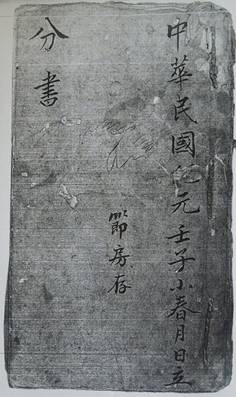 中華民國紀元壬子小春月日立
節房存
分書